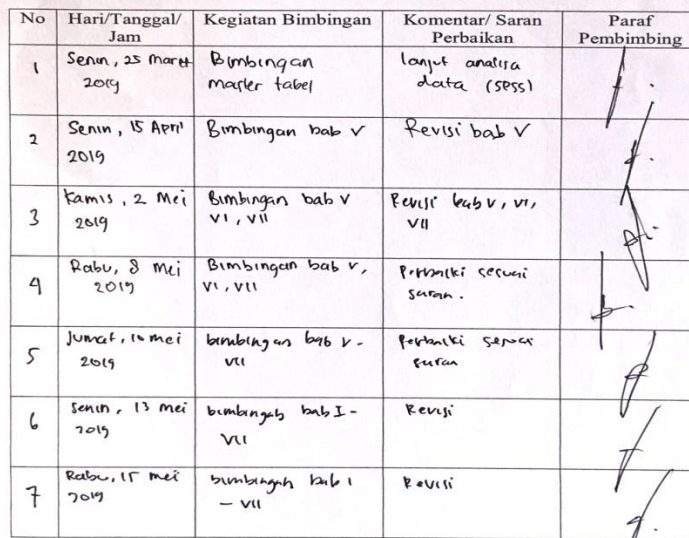 No Hari/Tanggal/ Jam Kegiatan Bimbingan Komentar/ Saran Perbaikan Paraf Pembimbing
1 Senin, 25 Maret 2019 Bimbingan master tabel lanjut analisa data (spss)
2 Senin, 15 April 2019 Bimbingan bab V Revisi bab V
3 Kamis, 2 Mei 2019 Bimbingan bab V VI, VII Revisi bab V, VI, VII
4 Rabu, 8 Mei 2019 Bimbingan bab V, VI, VII Perbaiki sesuai saran.
5 Jumat, 10 mei 2019 bimbingan bab V - VII Perbaiki sesuai saran
6 Senin, 13 mei 2019 bimbingah bab I - VII Revisi
7 Rabu, 15 mei 2019 bimbingah bab 1 - VII Revisi